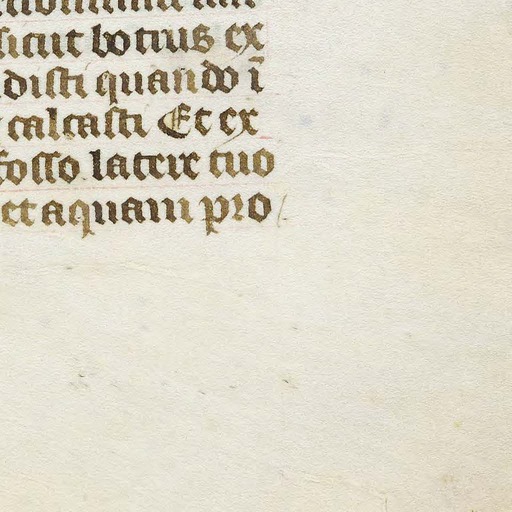 sicut botrus ex
disti quando ī
calcasti Et ex
fosso latere tuo
et aquam pro